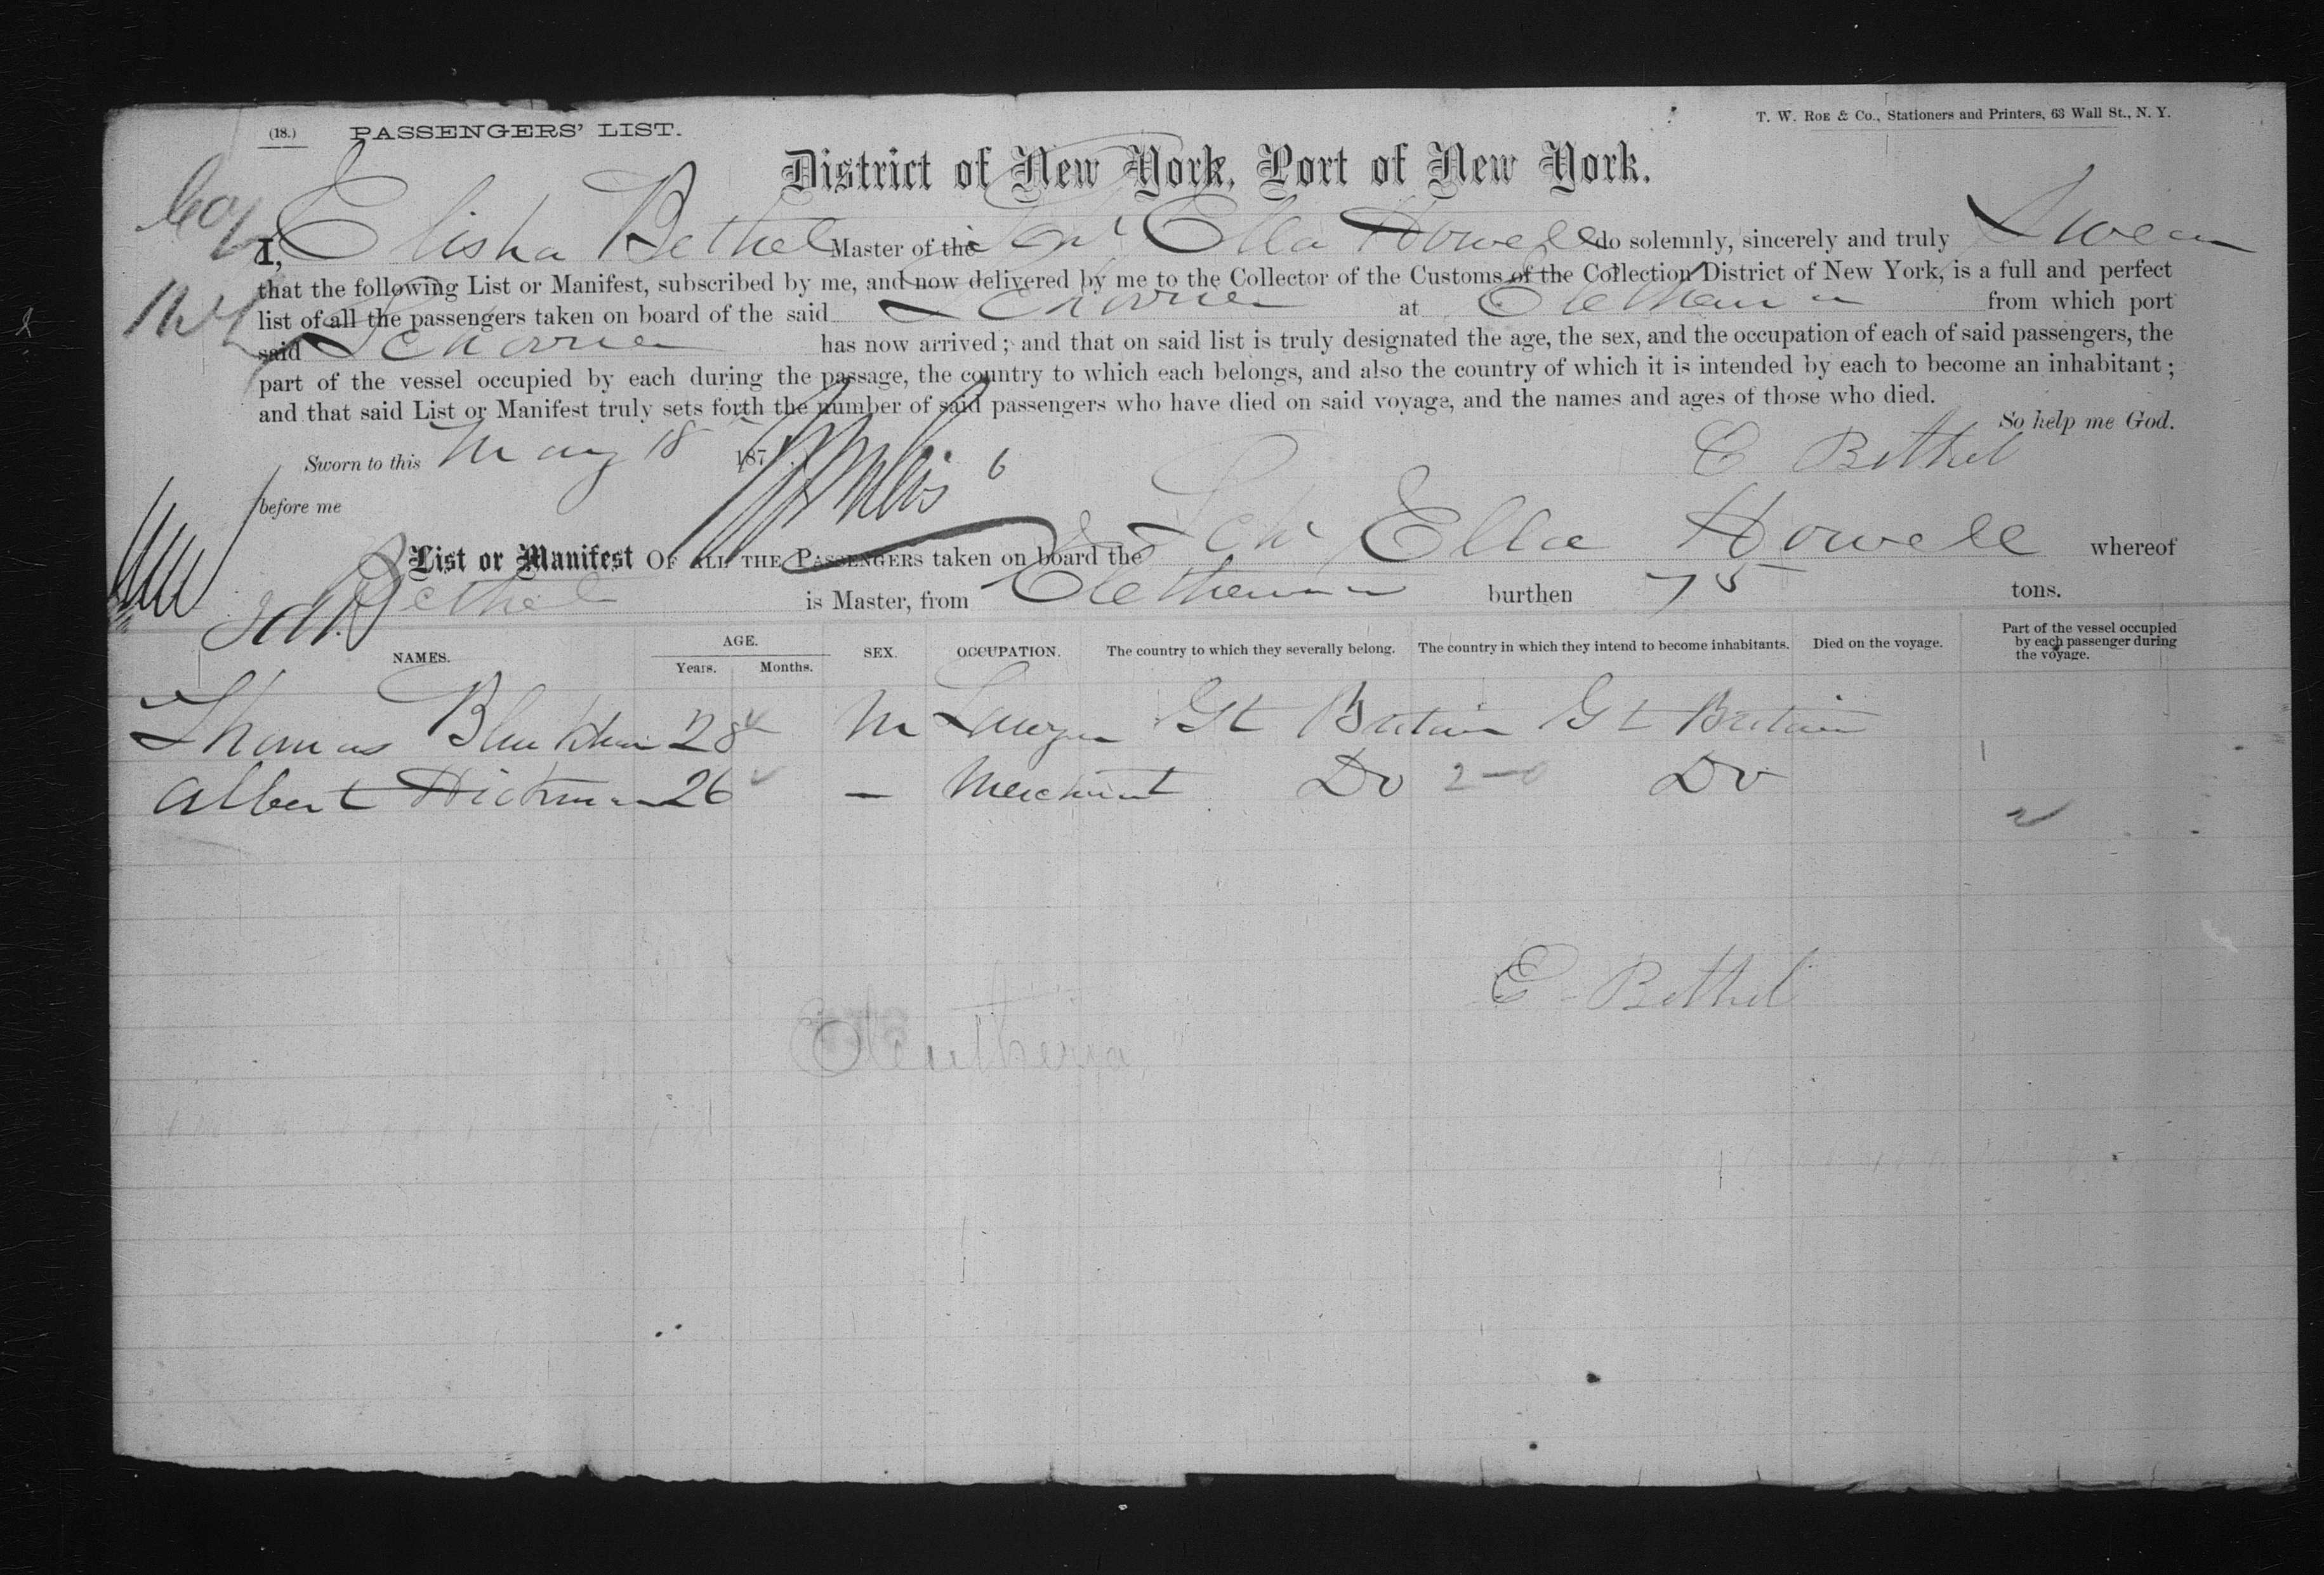 (18.) PASSENGERS' LIST.
T. W. ROE & Co., Stationers and Printers, 63 Wall St., N. Y.
District of New York, Port of New York.
I, Elisha Bethel Master of the Schr Ella Howell do solemnly, sincerely and truly Swear
that the following List or Manifest, subscribed by me, and now delivered by me to the Collector of the Customs of the Collection District of New York, is a full and perfect
list of all the passengers taken on board of the said Schooner at from which port
said Schooner has now arrived; and that on said list is truly designated the age, the sex, and the occupation of each of said passengers, the
part of the vessel occupied by each during the passage, the country to which each belongs, and also the country of which it is intended by each to become an inhabitant;
and that said List or Manifest truly sets forth the number of said passengers who have died on said voyage, and the names and ages of those who died.
So help me God.
Sworn to this May 18 187 6
E Bethel
before me
List or Manifest OF ALL THE PASSENGERS taken on board the Schr Ella Howell whereof
Bethel is Master, from burthen 75 tons.
NAMES. AGE. Years. Months. SEX. OCCUPATION. The country to which they severally belong. The country in which they intend to become inhabitants. Died on the voyage. Part of the vessel occupied by each passenger during the voyage.
Thomas 28 M Gt Britain Gt Britain
Albert Hickman 26 — Merchant Do 2-0 Do
E Bethel
Eleutheria